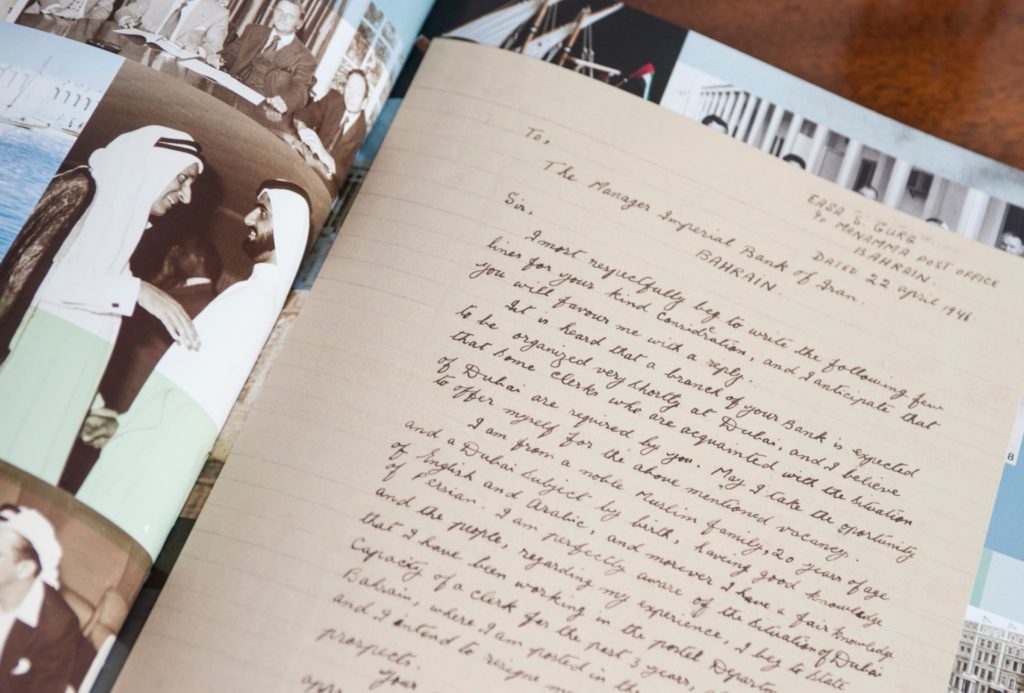 To,
The Manager Imperial Bank of Iran.
BAHRAIN.
EASA S. GURG
c/o MANAMMA POST OFFICE
BAHRAIN.
DATED 22 april 1946
Sir,
I most respectfully beg to write the following few
lines for your kind considration, and I anticipate that
you will favour me with a reply.
It is heard that a branch of your Bank is expected
to be organized very shortly at Dubai, and, I believe
that some clerks who are acquainted with the situation
of Dubai are required by you. May I take the opportunity
to offer myself for the above mentioned vacancy.
I am from a noble Muslim family, 20 years of age
and a Dubai subject by birth, having good knowledge
of English and Arabic, and morever I have a fair knowledge
of Persian. I am perfectly aware of the situation of Dubai
and the people, regarding my experience, I beg to state
that I have been working in the postel Departm
Capacity of a clerk for the past 3 years,
Bahrain, where I am posted in the
and I intend to resigne
prospects.
Your
appr
8